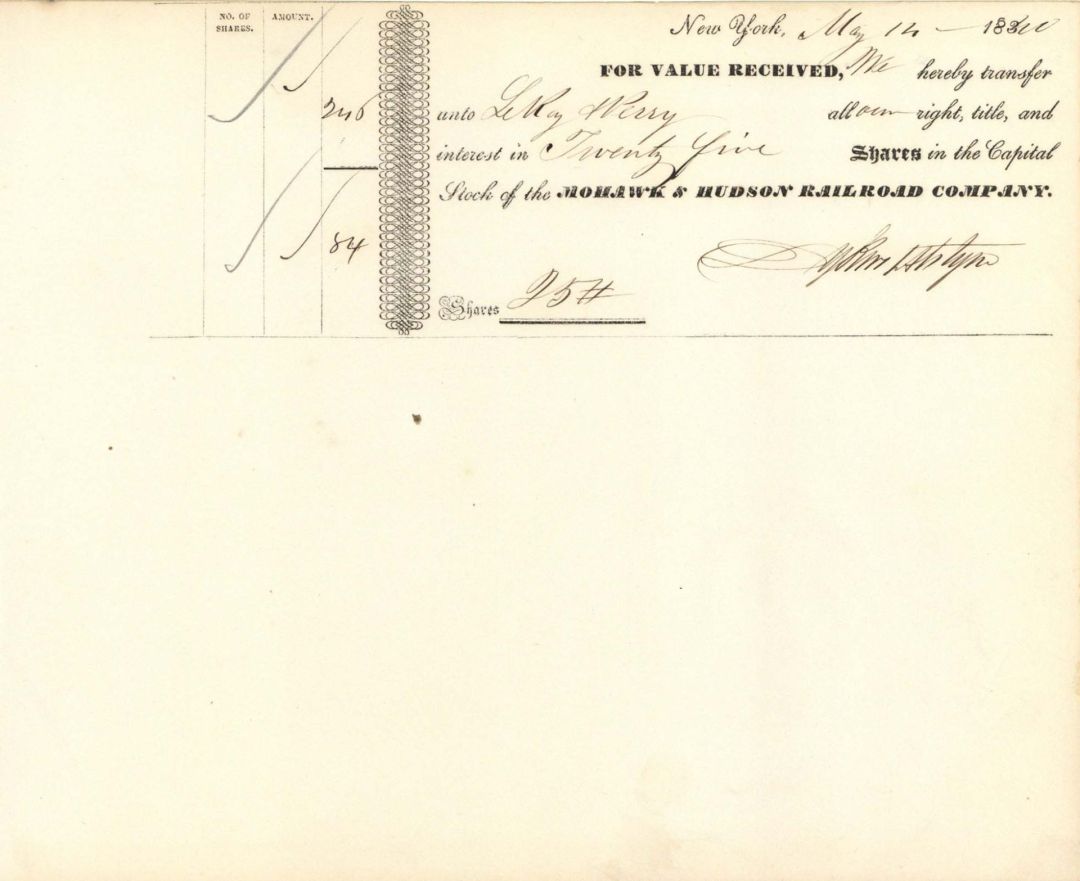 NO. OF SHARES. AMOUNT.
New York, May 12 1840
FOR VALUE RECEIVED, We hereby transfer
246 unto LeRoy & Perry all our right, title, and
interest in Twenty five Shares in the Capital
Stock of the MOHAWK & HUDSON RAILROAD COMPANY.
84
Shares 25